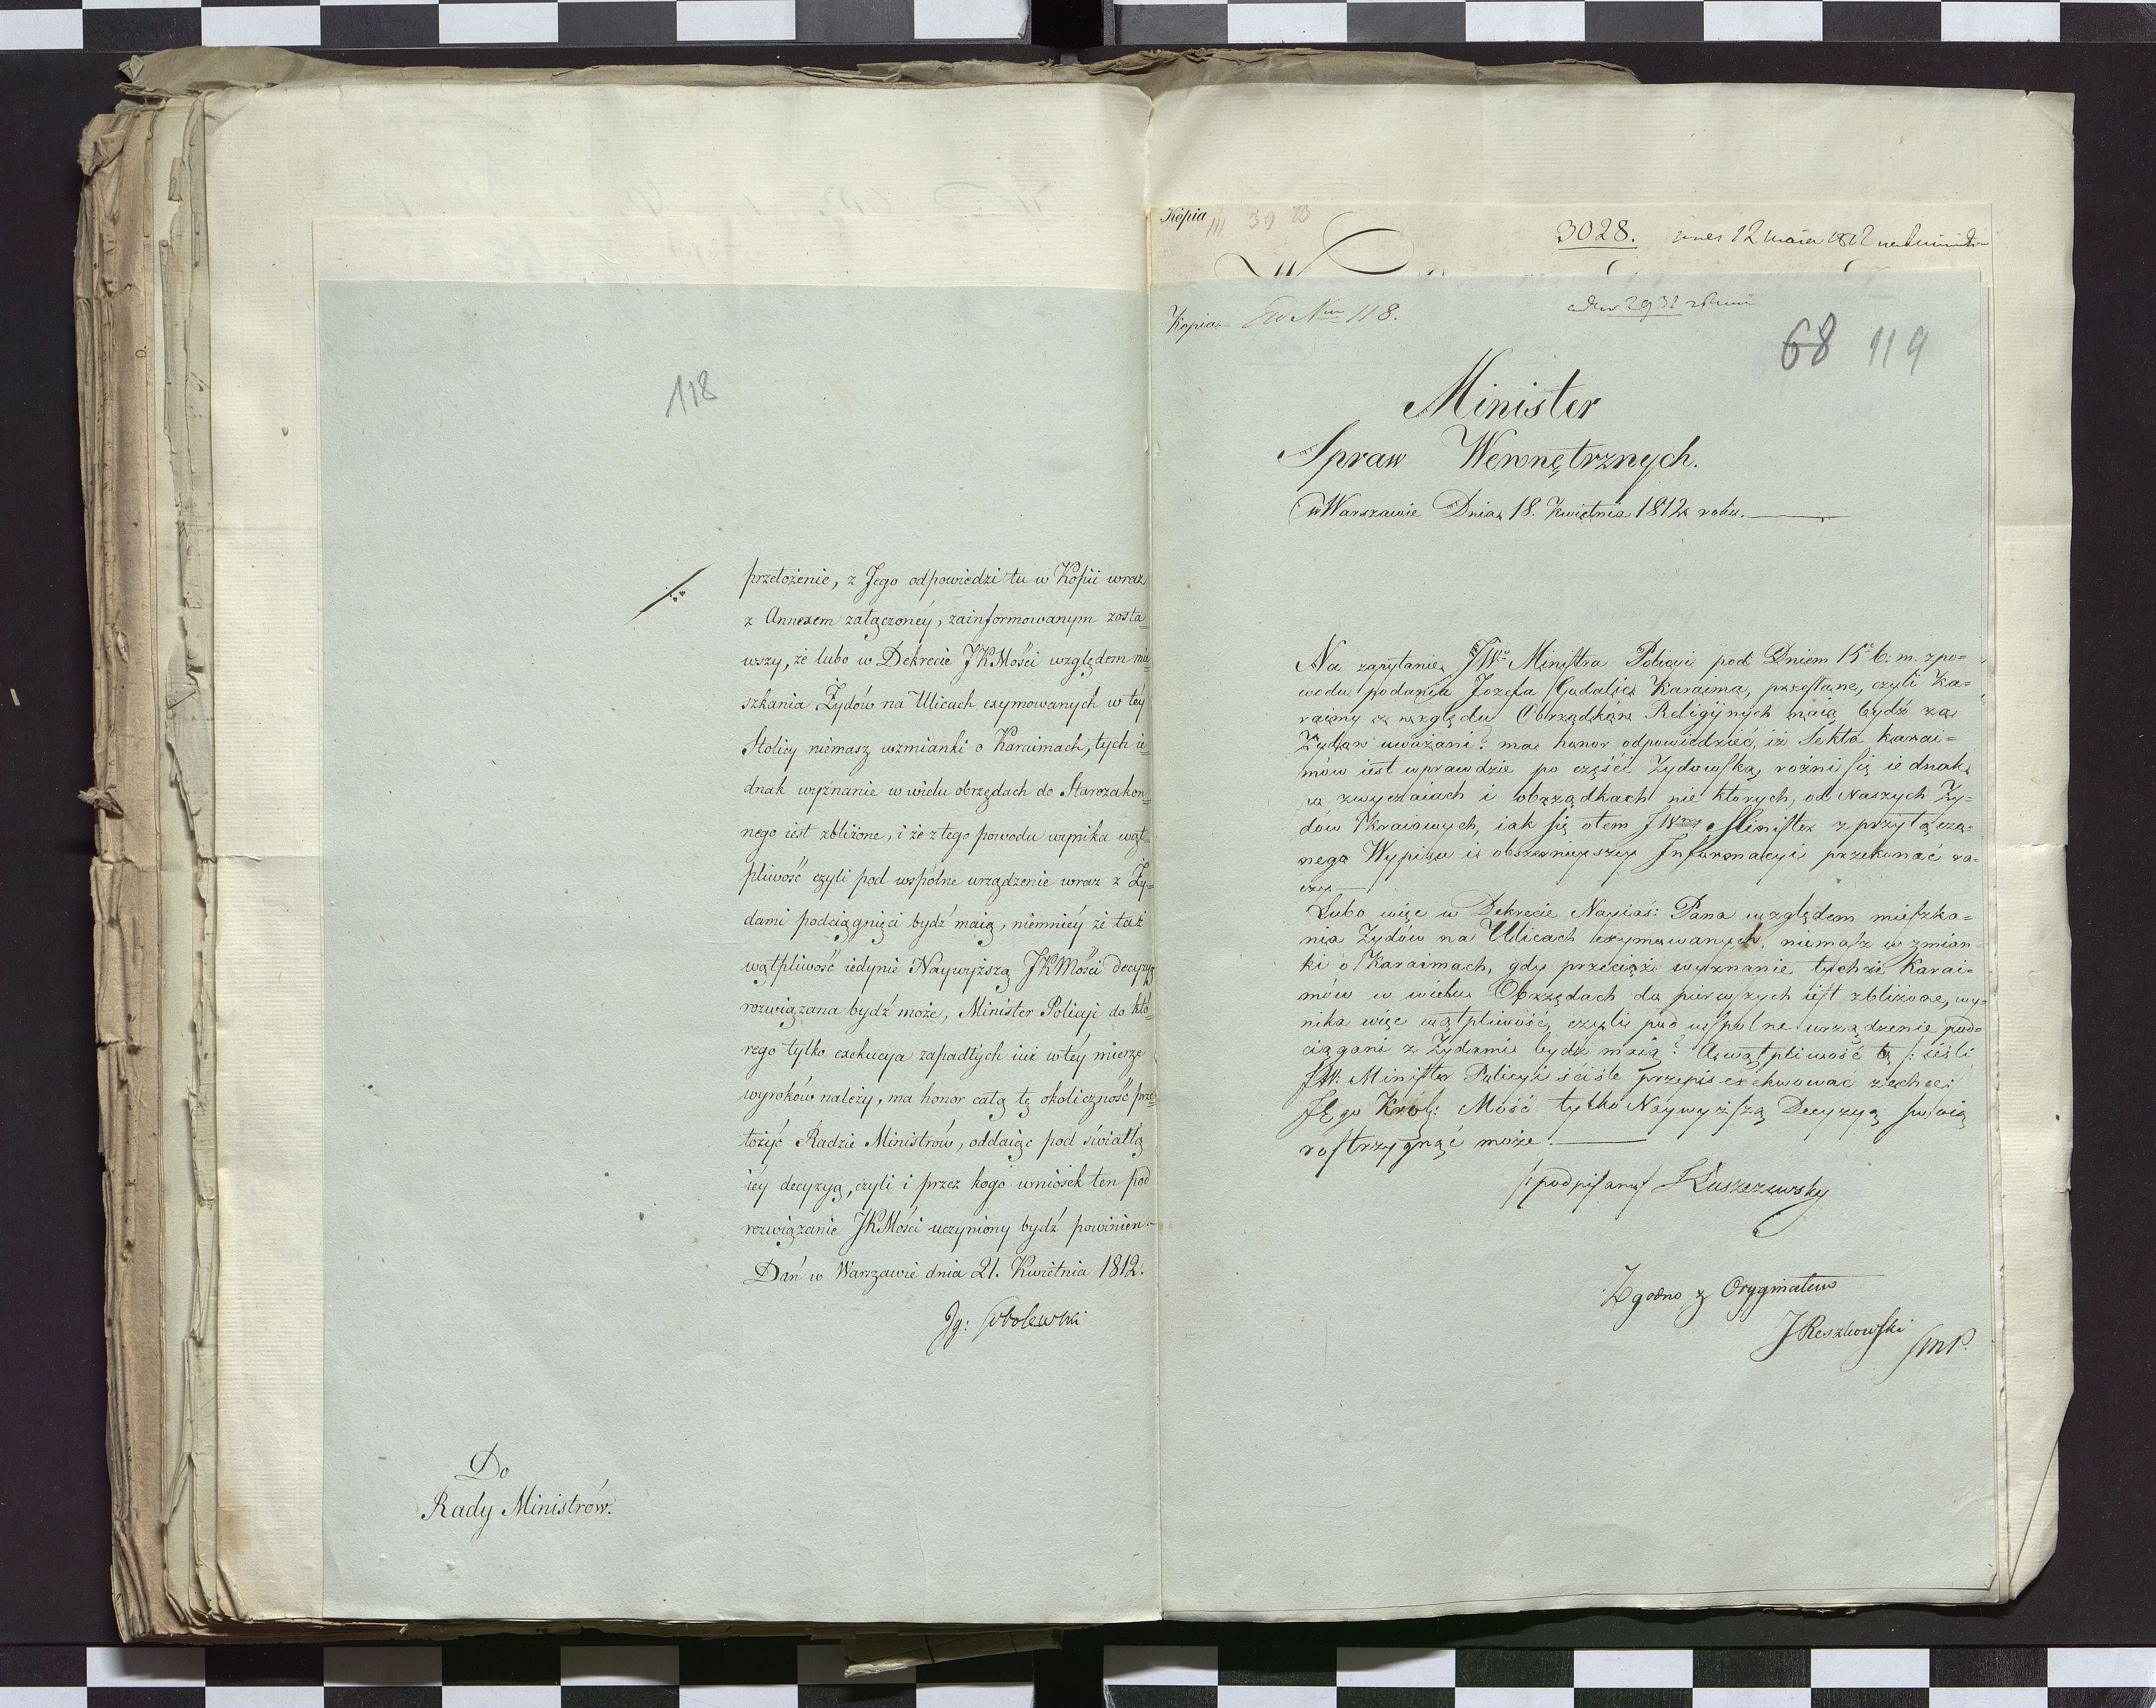 118
przełożenie, z Jego odpowiedzi tu w Kopii wraz
z Annexem załączoney, zainformowanym zosta=
wszy, że lubo w Dekrecie JKMości względem mie=
szkania Żydów na Ulicach exymowanych w téy
Stolicy niemasz wzmianki o Karaimach, tych ie=
dnak wyznanie w wielu obrzędach do Starozakon=
nego iest zbliżone, i że z tego powodu wynika wąt=
pliwość czyli pod wspólne urządzenie wraz z Ży=
dami podciągnięci bydź maią, niemniéy że taż
wątpliwość iedynie Naywyższą JKMości decyzyą
rozwiązana bydź może, Minister Policyi do któ=
rego tylko exekucya zapadłych iuż w téy mierze
wyroków należy, ma honor całą tę okoliczność prze=
łożyć Radzie Ministrów, oddaiąc pod światłą
iéy decyzyą, czyli i przez kogo wniosek ten pod
rozwiązanie JKMości uczyniony bydź powinien.
Dań w Warszawie dnia 21. Kwietnia 1812.
Jg: Sobolewski
Do
Rady Ministrów.
Kopia
III 39 23
3028. 12 1812
Kopia. 118.
2931
68 119
Minister
Spraw Wewnętrznych.
w Warszawie Dnia 18. Kwietnia 1812 roku.
Na zapytanie JWo Ministra Policyi pod Dniem 15o b. m. z po=
wodu podania Jozefa Gudalia Karaima, przesłane, czyli Ka=
raimy ze względu Obrządków Religiynych maią bydź za
Żydów uważani? ma honor odpowiedzieć, iż Sekta karai=
mów iest wprawdzie po części Żydowską, rożni się iednak
w zwyczaiach i obrządkach nie ktorych, od Naszych Ży=
dów Kraiowych, iak się o tem JWny Minister z przyłączo=
nego Wypisu i obszernieyszey Informacyi przekonać ra=
czy.
Lubo więc w Dekrecie Nayiaś: Pana względem mieszka=
nia Żydów na Ulicach exymowanych niemasz wzmian=
ki o Karaimach, gdy przeciąż wyznanie tychże Karai=
mów w wielu Obrzędach do pierwszych iest zbliżone, wy=
nika więc wątpliwość, czyli pod wspolne urządzenie pod=
ciągani z Żydami bydź maią? wątpliwość tą /: ieśli
JW. Minister Policyi ściśle przepis exekwować zechce:
JEgo Król: Mość tylko Naywyższą Decyzyą swoią
rostrzygnąć może.
/:podpisany/ Łuszczewsky
Zgodno z Oryginałem
J Reszkowski SMP.